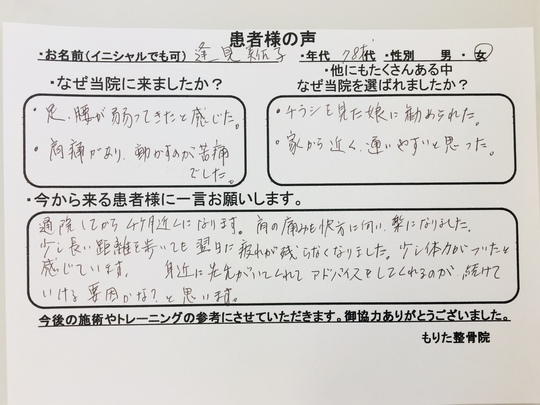 患者様の声
・お名前(イニシャルでも可) 逢見 ・年代 78才代 ・性別 男・女
・なぜ当院に来ましたか?
・他にもたくさんある中
なぜ当院を選ばれましたか?
・足、腰が弱ってきたと感じた。
・肩痛があり、動かすのが苦痛
でした。
・チラシを見た娘に勧められた。
・家から近く、通いやすいと思った。
・今から来る患者様に一言お願いします。
通院してから4ケ月近くになります。肩の痛みも快方に向い、楽になりました。
少し長い距離を歩いても翌日に疲れが残らなくなりました。少し体力がついたと
感じています。 身近に先生がいてくれてアドバイスをしてくれるのが、続けて
いける要因かな?と思います。
今後の施術やトレーニングの参考にさせていただきます。御協力ありがとうございました。
もりた整骨院